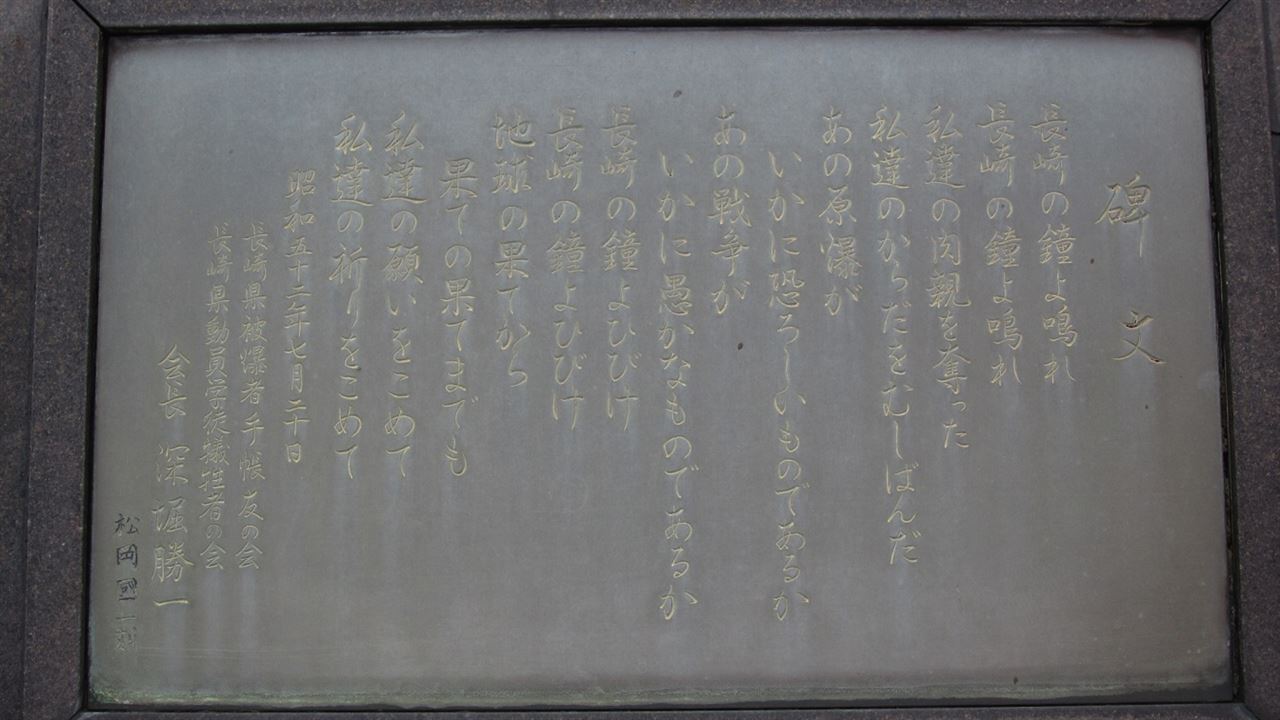 碑文
長崎の鐘よ鳴れ
長崎の鐘よ鳴れ
私達の肉親を奪った
私達のからだをむしばんだ
あの原爆が
いかに恐ろしいものであるか
あの戦争が
いかに愚かなものであるか
長崎の鐘よひびけ
長崎の鐘よひびけ
地球の果てから
果ての果てまでも
私達の願いをこめて
私達の祈りをこめて
昭和五十二年七月二十日
長崎県被爆者手帳友の会
長崎県動員学徒犠牲者の会
会長 深堀勝一
松岡國一刻